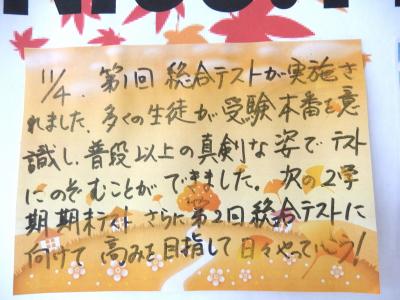 11/4. 第1回 総合テストが実施さ
れました。多くの生徒が受験本番を意
識し、普段以上の真剣な姿でテスト
にのぞむことができました。次の2学
期期末テスト さらに第2回総合テストに
向けて 高みを目指して日々やっていこう!